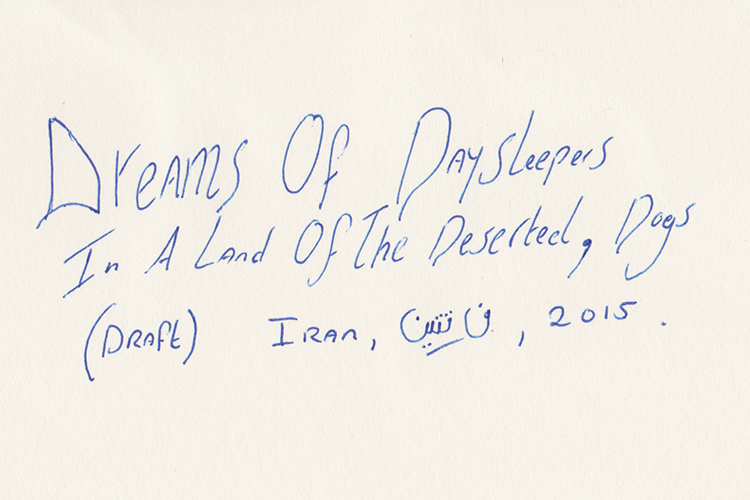 Dreams Of Daysleepers
In A Land Of The Deserted, Dogs
(Draft) Iran, , 2015.